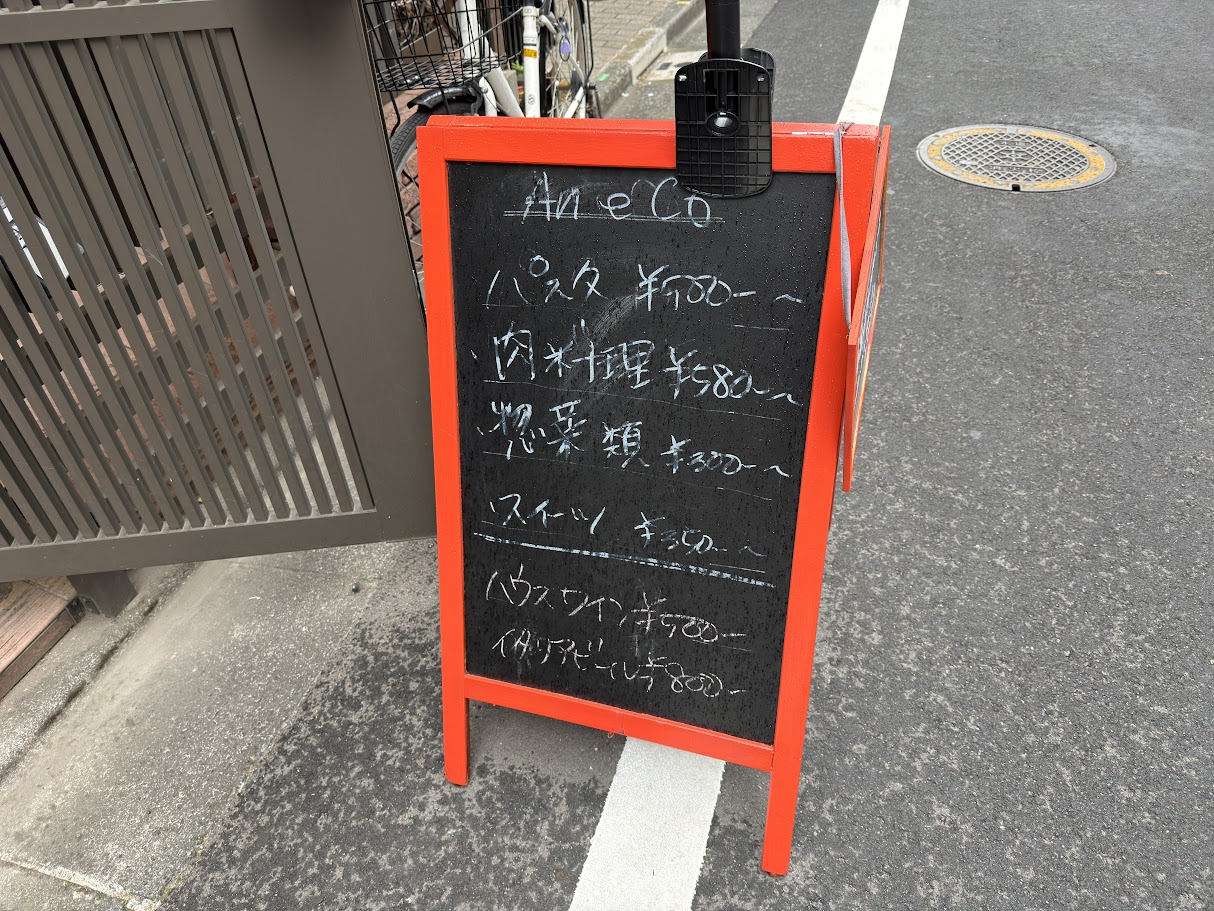 An e Co
パスタ ¥500-~
肉料理 ¥580-~
惣菜類 ¥300-~
スイーツ ¥350-~
ハウスワイン ¥500-
イタリアビール ¥800-